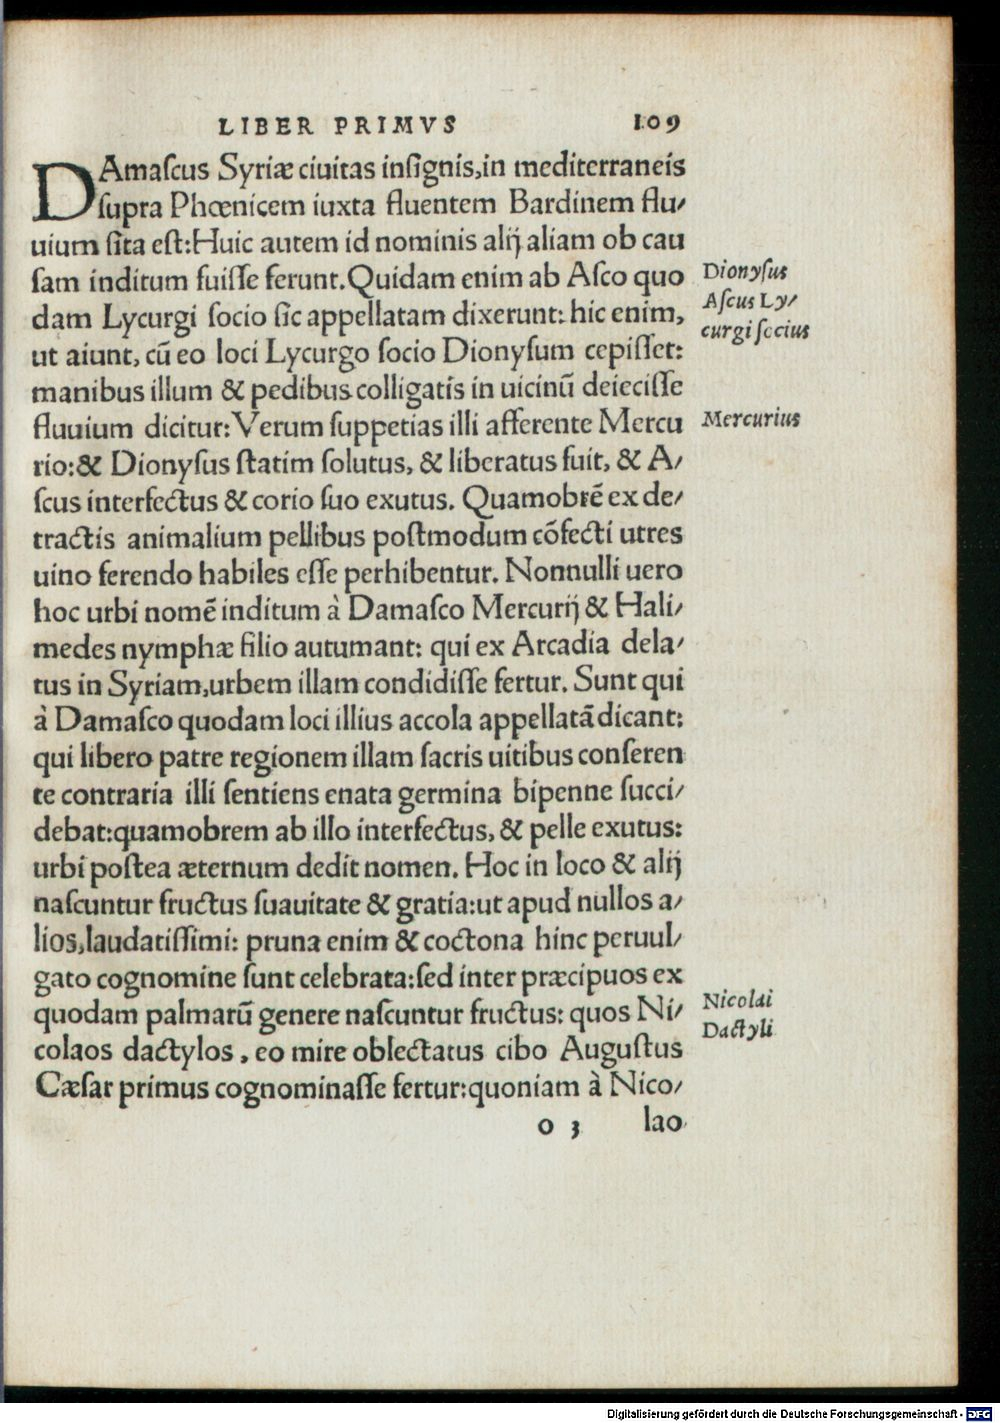 LIBER PRIMVS 109
DAmaſcus Syriæ ciuitas inſignis,in mediterraneis
ſupra Phœnicem iuxta fluentem Bardinem flu⸗
uium ſita eſt:Huic autem id nominis alij aliam ob cau
ſam inditum fuiſſe ferunt.Quidam enim ab Aſco quo
dam Lycurgi ſocio ſic appellatam dixerunt: hic enim,
ut aiunt, cũ eo loci Lycurgo ſocio Dionyſum cepiſſet:
manibus illum & pedibus colligatis in uicinũ deieciſſe
fluuium dicitur: Verum ſuppetias illi afferente Mercu
rio:& Dionyſus ſtatim ſolutus, & liberatus fuit, & A⸗
ſcus interfectus & corio ſuo exutus. Quamobrẽ ex de⸗
tractis animalium pellibus poſtmodum cõfecti utres
uino ferendo habiles eſſe perhibentur. Nonnulli uero
hoc urbi nomẽ inditum à Damaſco Mercurij & Hali⸗
medes nymphæ filio autumant: qui ex Arcadia dela⸗
tus in Syriam,urbem illam condidiſſe fertur. Sunt qui
à Damaſco quodam loci illius accola appellatã dicant:
qui libero patre regionem illam ſacris uitibus conſeren
te contraria illi ſentiens enata germina bipenne ſucci⸗
debat:quamobrem ab illo interfectus, & pelle exutus:
urbi poſtea æternum dedit nomen. Hoc in loco & alij
naſcuntur fructus ſuauitate & gratia:ut apud nullos a⸗
lios,laudatiſſimi: pruna enim & coctona hinc peruul⸗
gato cognomine ſunt celebrata:ſed inter præcipuos ex
quodam palmarũ genere naſcuntur fructus: quos Ni⸗
colaos dactylos, eo mire oblectatus cibo Auguſtus
Cæſar primus cognominaſſe fertur:quoniam à Nico⸗
o 3 lao
Dionyſus
Aſcus Ly⸗
curgi ſocius
Mercurius
Nicolai
Dactyli
Digitalisierung gefördert durch die Deutsche Forschungsgemeinschaft - DFG